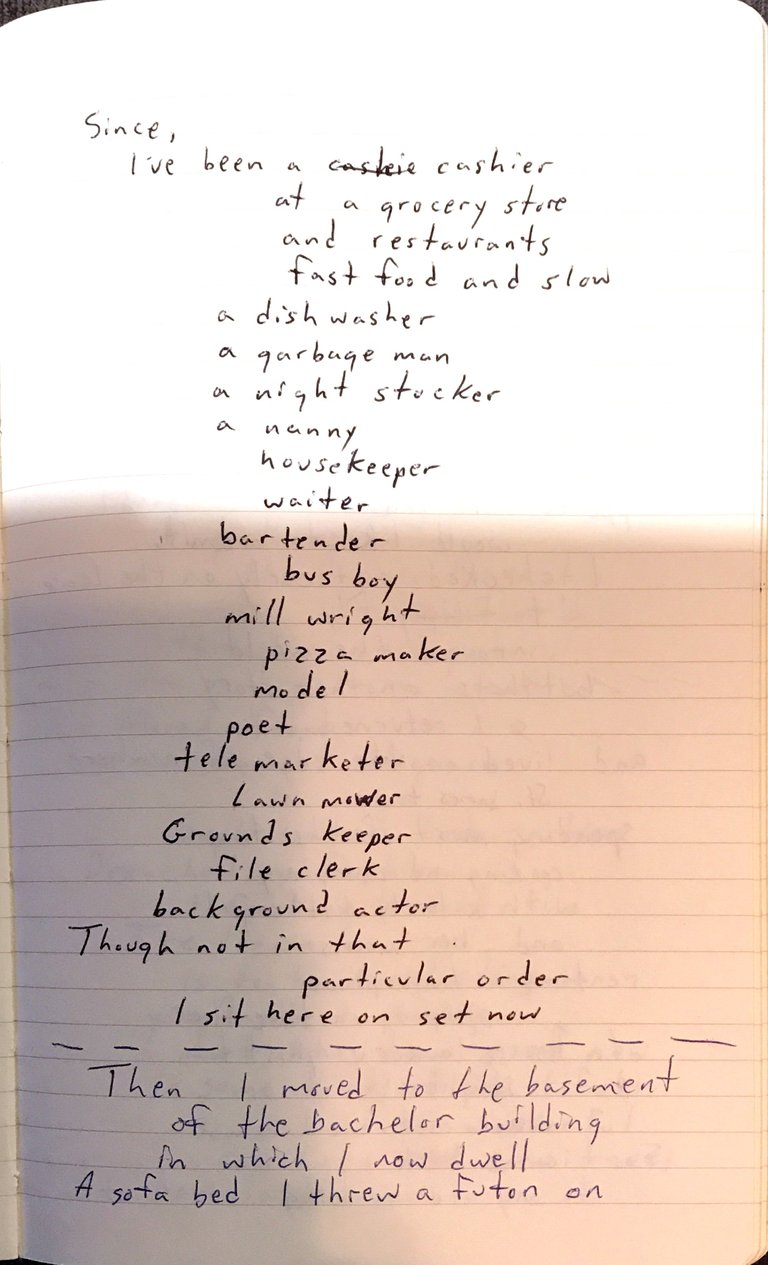 Since,
I've been a cashier
at a grocery store
and restaurants
fast food and slow
a dish washer
a garbage man
a night stocker
a nanny
housekeeper
waiter
bartender
bus boy
mill wright
pizza maker
model
poet
tele marketer
Lawn mower
Grounds keeper
file clerk
background actor
Though not in that
particular order
I sit here on set now
Then I moved to the basement
of the bachelor building
in which I now dwell
A sofa bed I threw a futon on